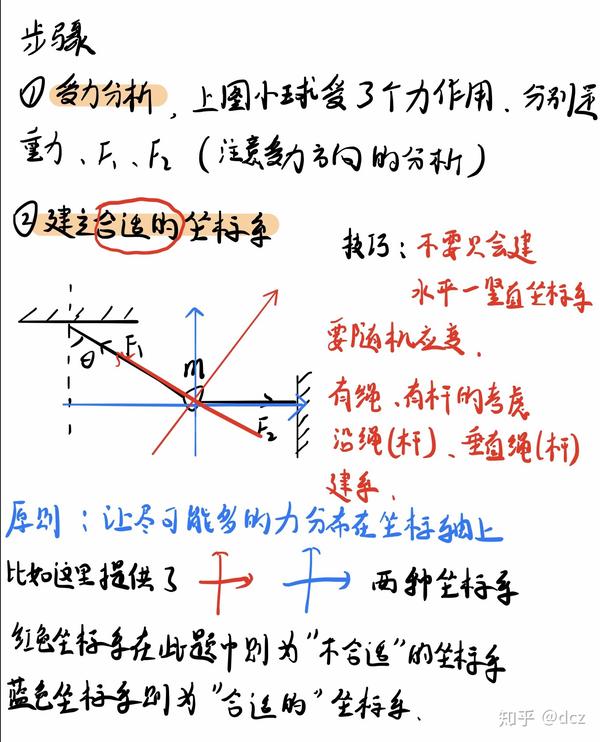 步骤
① 受力分析，上图小球受了个力作用．分别是
重力、F₁、F₂（注意受力方向的分析）
② 建立合适的坐标系
技巧：不要只会建
水平一竖直坐标系
要随机应变．
有绳、有杆的考虑
沿绳(杆)、垂直绳(杆)
建系．
θ F₁ m
F₂
原则：让尽可能多的力分布在坐标轴上
比如这里提供了 两种坐标系
红色坐标系在此题中则为"不合适"的坐标系
蓝色坐标系则为"合适的"坐标系．
知乎 @dcz